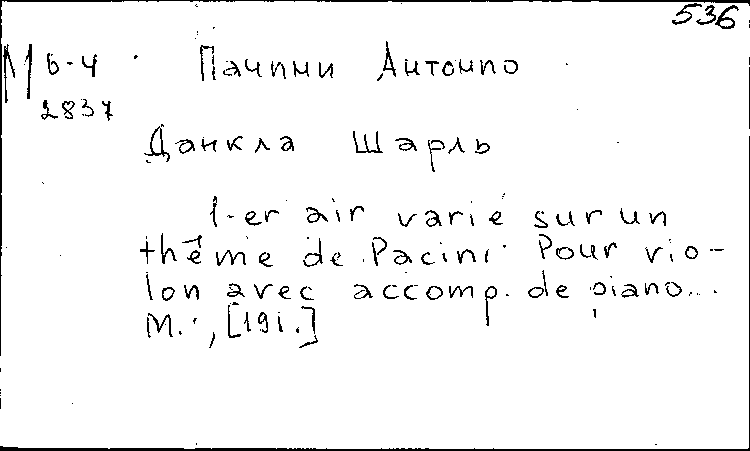 536
М 6-4 Пачини Антонио
2837
Данкла Шарль
1-er air varié sur un
thême de Pacini. Pour vio-
lon avec accomp. de piano...
М., [191.]